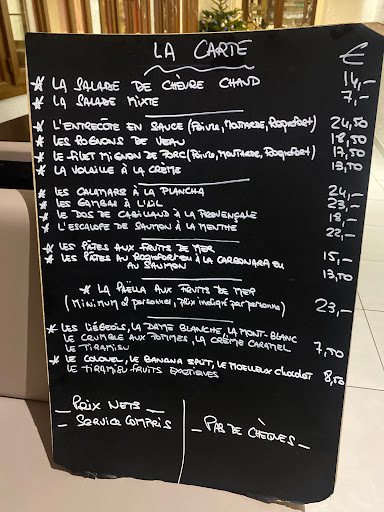 LA CARTE €
* LA SALADE DE CHÈVRE CHAUD 14,-
* LA SALADE MIXTE 7,-
* L'ENTRECÔTE EN SAUCE (POIVRE, MOUTARDE, ROQUEFORT) 24,50
* LES ROGNONS DE VEAU 18,50
* LE FILET MIGNON DE PORC (POIVRE, MOUTARDE, ROQUEFORT) 17,50
* LA VOLAILLE À LA CRÈME 13,50
* LES CALAMARS À LA PLANCHA 24,-
* LES GAMBAS À L'AIL 23,-
* LE DOS DE CABILLAUD À LA PROVENÇALE 18,-
* L'ESCALOPE DE SAUMON À LA MENTHE 22,-
* LES PÂTES AUX FRUITS DE MER 15,-
* LES PÂTES AU ROQUEFORT OU À LA CARBONARA OU
AU SAUMON 13,50
* LA PAËLLA AUX FRUITS DE MER
(MINIMUM 2 PERSONNES, PRIX INDIQUÉ PAR PERSONNE) 23,-
* LES LIÉGEOIS, LA DAME BLANCHE, LA MONT-BLANC
LE CRUMBLE AUX POMMES, LA CRÈME CARAMEL 7,50
LE TIRAMISU
* LE COLONEL, LE BANANA SPLIT, LE MOELLEUX CHOCOLAT 8,50
LE TIRAMISU FRUITS EXOTIQUES
_ PRIX NETS _
_ SERVICE COMPRIS
_ PAS DE CHÈQUES _